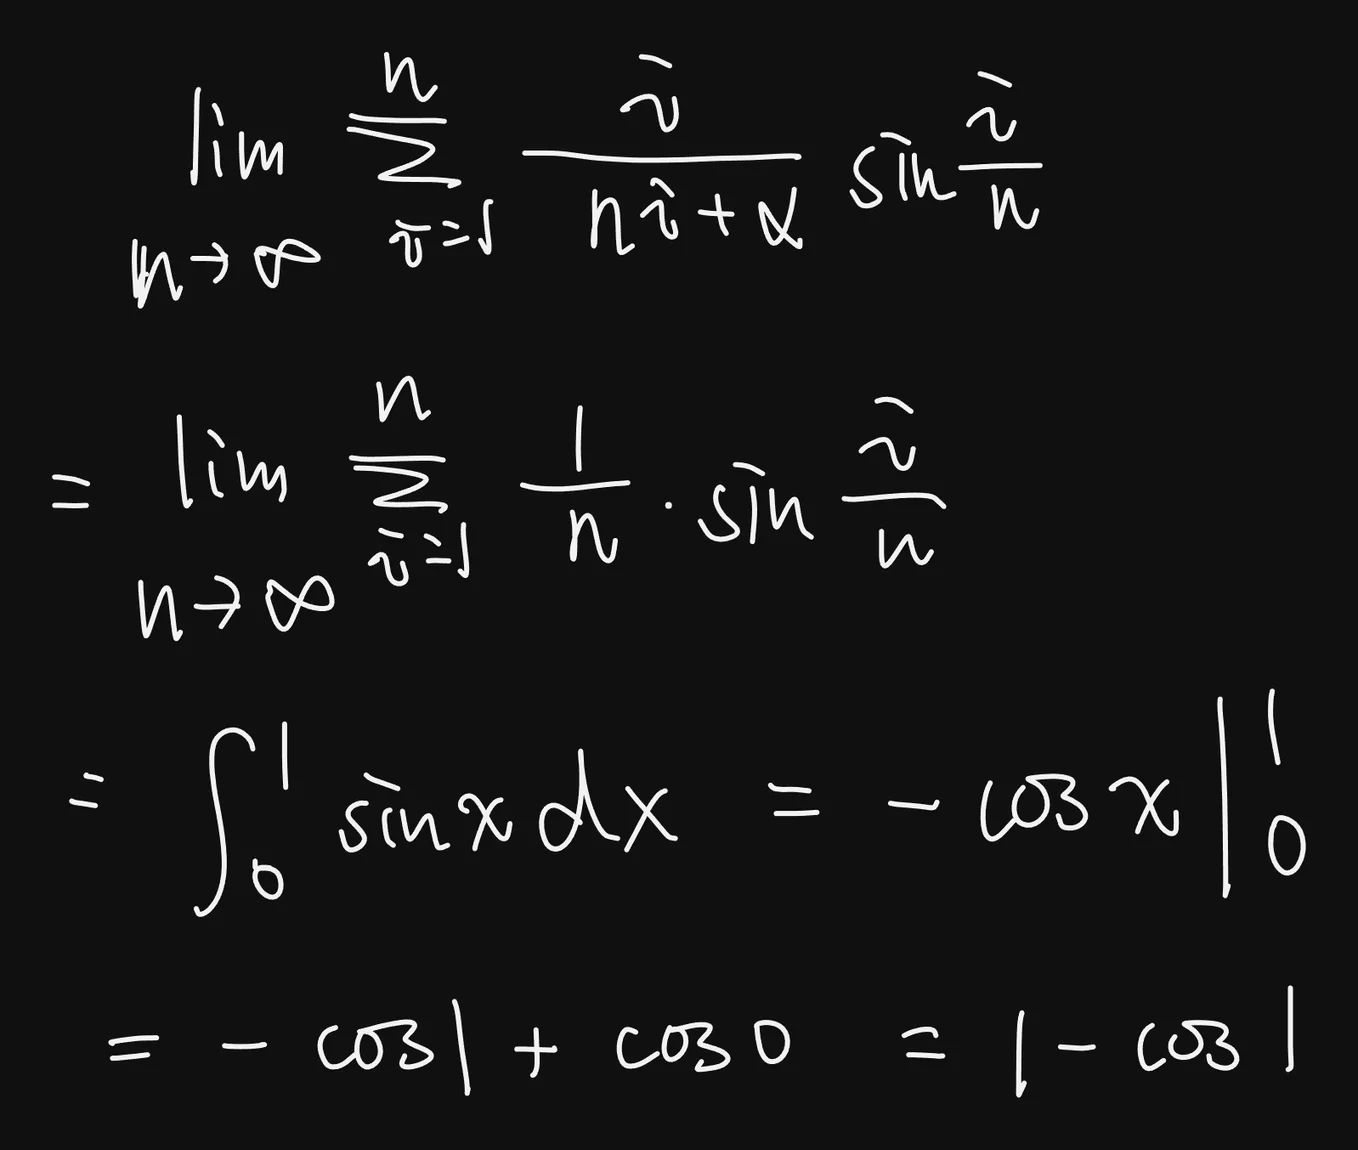 lim_{n→∞} ∑_{i=1}^{n} \frac{i}{ni+α} sin \frac{i}{n}
= lim_{n→∞} ∑_{i=1}^{n} \frac{1}{n} · sin \frac{i}{n}
= ∫_0^1 sin x dx = - cos x |_0^1
= - cos 1 + cos 0 = 1 - cos 1